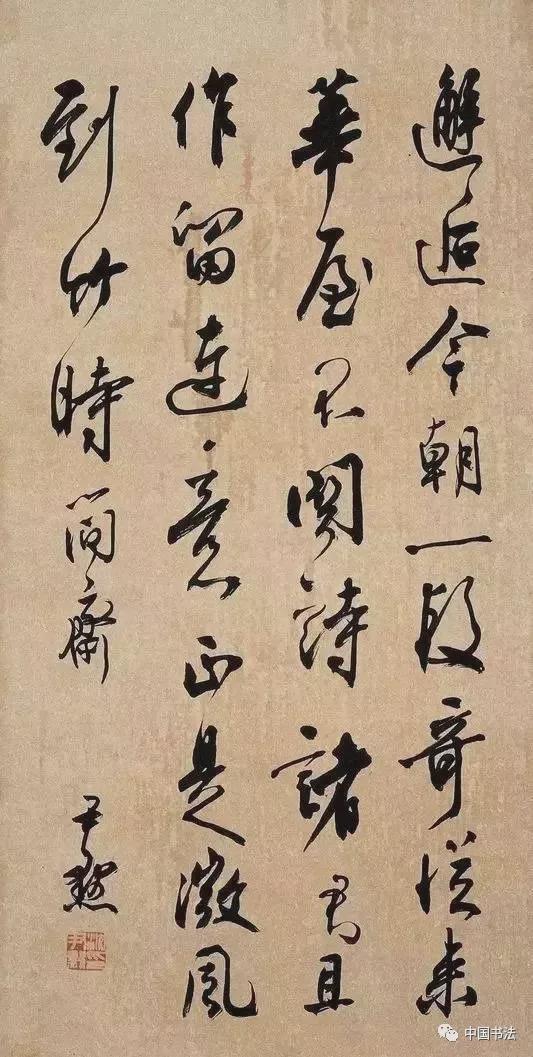 邂逅今朝一段奇從來
華屋不關詩諸君且
作留連意正是微風
到竹時 簡齋
尹默
中国书法